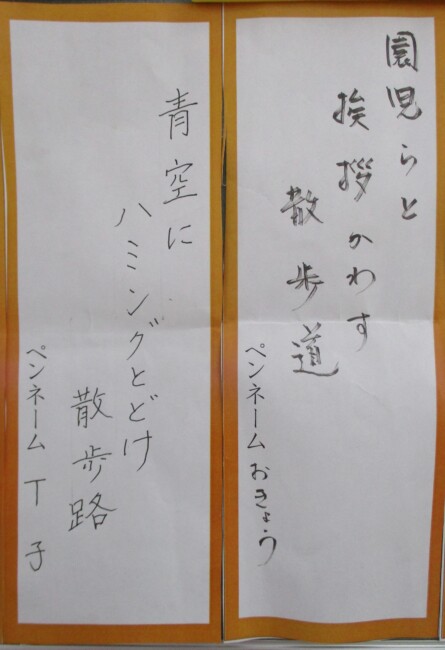 園児らと
挨拶かわす
散歩道
ペンネームおきょう
青空に
ハミングとどけ
散歩路
ペンネームT子